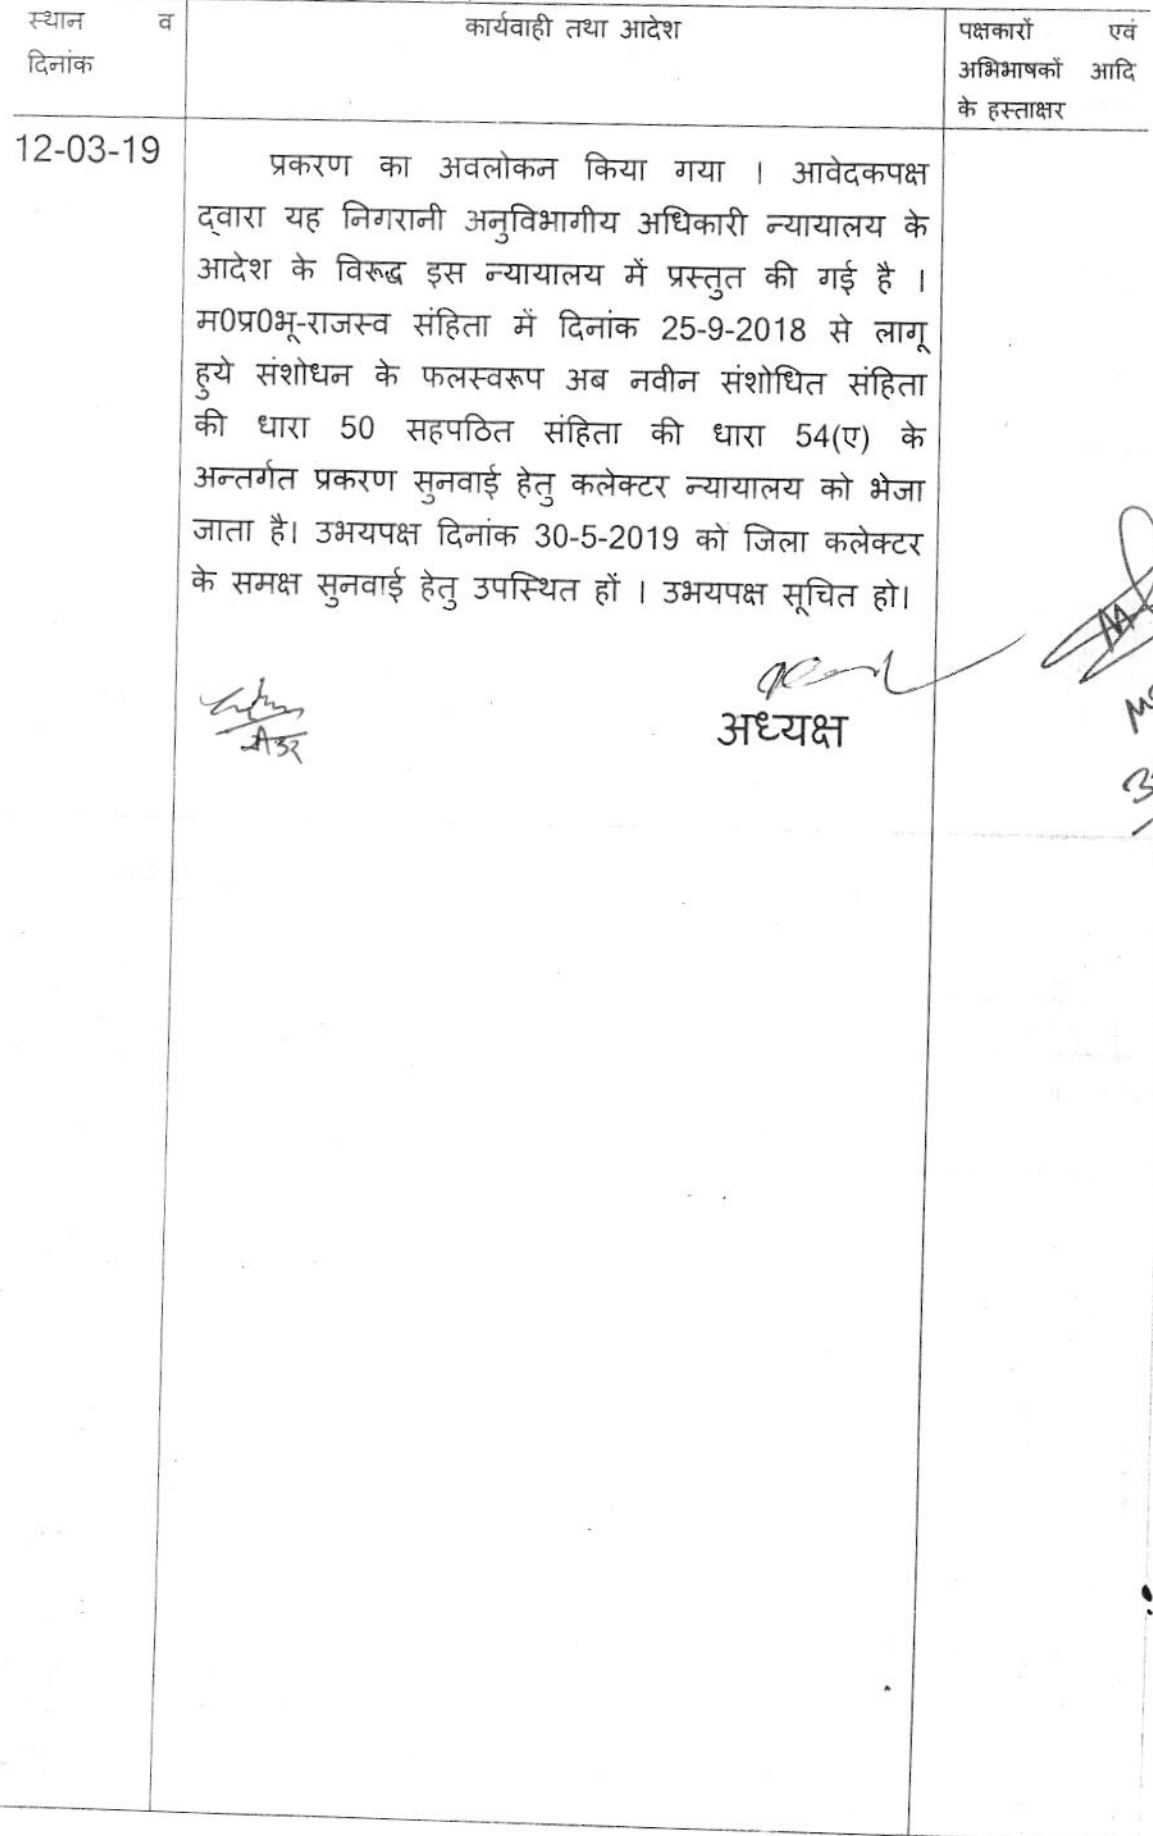 स्थान व
दिनांक
कार्यवाही तथा आदेश
पक्षकारों एवं
अभिभाषकों आदि
के हस्ताक्षर
12-03-19
प्रकरण का अवलोकन किया गया । आवेदकपक्ष
द्वारा यह निगरानी अनुविभागीय अधिकारी न्यायालय के
आदेश के विरूद्ध इस न्यायालय में प्रस्तुत की गई है ।
म0प्र0भू-राजस्व संहिता में दिनांक 25-9-2018 से लागू
हुये संशोधन के फलस्वरूप अब नवीन संशोधित संहिता
की धारा 50 सहपठित संहिता की धारा 54(ए) के
अन्तर्गत प्रकरण सुनवाई हेतु कलेक्टर न्यायालय को भेजा
जाता है। उभयपक्ष दिनांक 30-5-2019 को जिला कलेक्टर
के समक्ष सुनवाई हेतु उपस्थित हों । उभयपक्ष सूचित हो।
अध्यक्ष